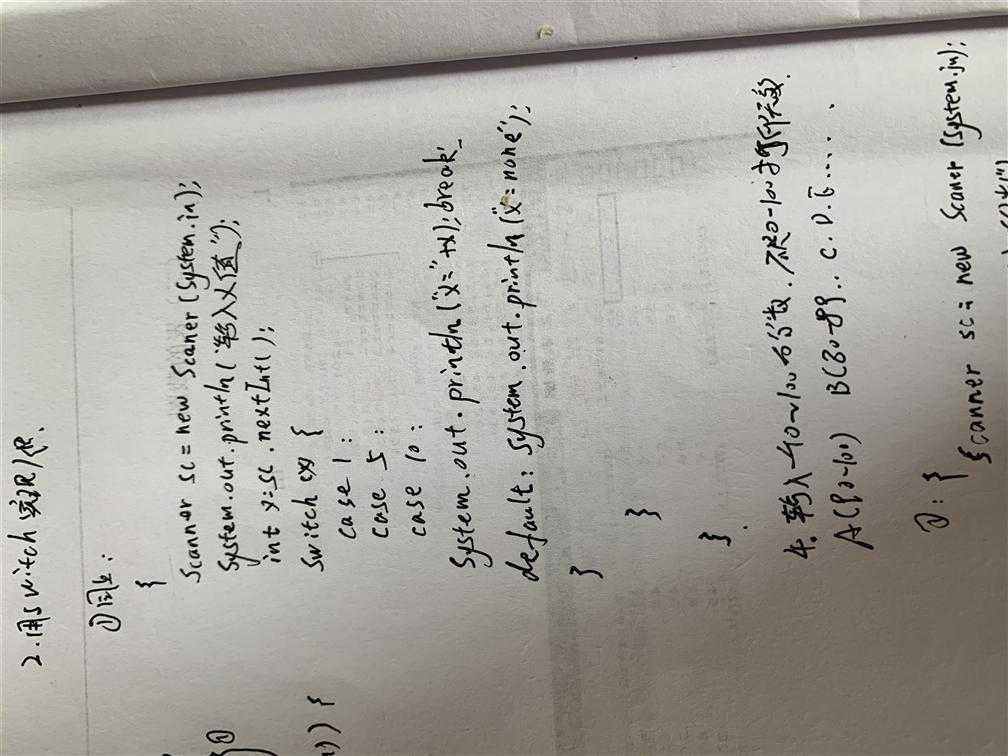 2.用switch实现代.
①同上:
{
Scanner sc = new Scaner (System.in);
System.out.println("输入x值");
int x=sc.nextInt();
Switch (x) {
case 1:
case 5:
case 10:
System.out.println("x="+x);break
default: System.out.println("x=none");
}
}
}.
4.输入一个0~100分数.不是0-100
A(90~100) B(80-89.. C.D.E.....
①:{
Scanner sc = new Scaner (System.in);
①
)) {